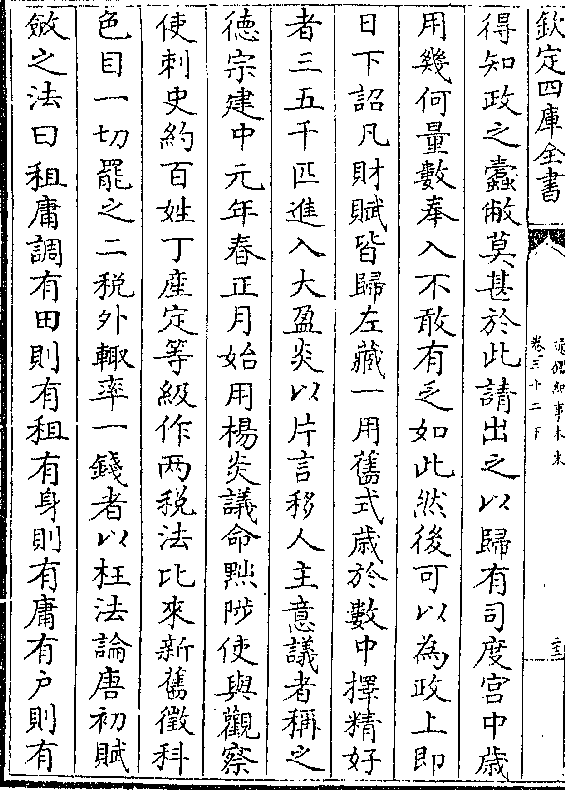 欽定四庫全書
通鑑紀事本末
卷三十二下
得知政之蠹敝莫甚於此請出之以歸有司度宫中歲
用幾何量數奉入不敢有乏如此然後可以為政上即
日下詔凡財賦皆歸左藏一用舊式歲於數中擇精好
者三五千匹進入大盈炎以片言移人主意議者稱之
德宗建中元年春正月始用楊炎議命黜陟使與觀察
使刺史約百姓丁產定等級作兩税法比來新舊徵科
色目一切罷之二税外輙率一錢者以枉法論唐初賦
斂之法曰租庸調有田則有租有身則有庸有户則有